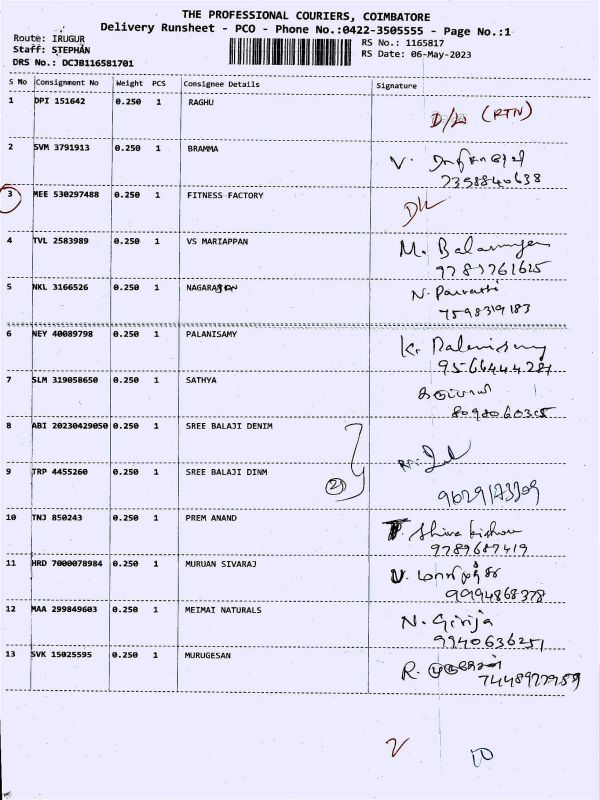 THE PROFESSIONAL COURIERS, COIMBATORE
Delivery Runsheet - PCO - Phone No.:0422-3505555 - Page No.:1
Route: IRUGUR
RS No.: 1165817
Staff: STEPHAN
RS Date: 06-May-2023
DRS No.: DCJB116581701
S No Consignment No Weight PCS Consignee Details Signature
1 DPI 151642 0.250 1 RAGHU
D/L (RTN)
2 SVM 3791913 0.250 1 BRAMMA
V.
7358840638
3 MEE 530297488 0.250 1 FITNESS FACTORY
D/L
4 TVL 2583989 0.250 1 VS MARIAPPAN
M. Balamurugan
5 NKL 3166526 0.250 1
N. Parvathi
7598319183
6 NEY 40089798 0.250 1 PALANISAMY
K. Palanisamy
9566444281
7 SLM 319058650 0.250 1 SATHYA
8098060305
8 ABI 20230429050 0.250 1 SREE BALAJI DENIM
9 TRP 4455260 0.250 1 SREE BALAJI DINM
2
10 TNJ 850243 0.250 1 PREM ANAND
9789687419
11 HRD 7000078984 0.250 1 MURUAN SIVARAJ
V.
9994868378
12 MAA 299849603 0.250 1 MEIMAI NATURALS
N. Girija
9940636251
13 SVK 15025595 0.250 1 MURUGESAN
R.
2 10